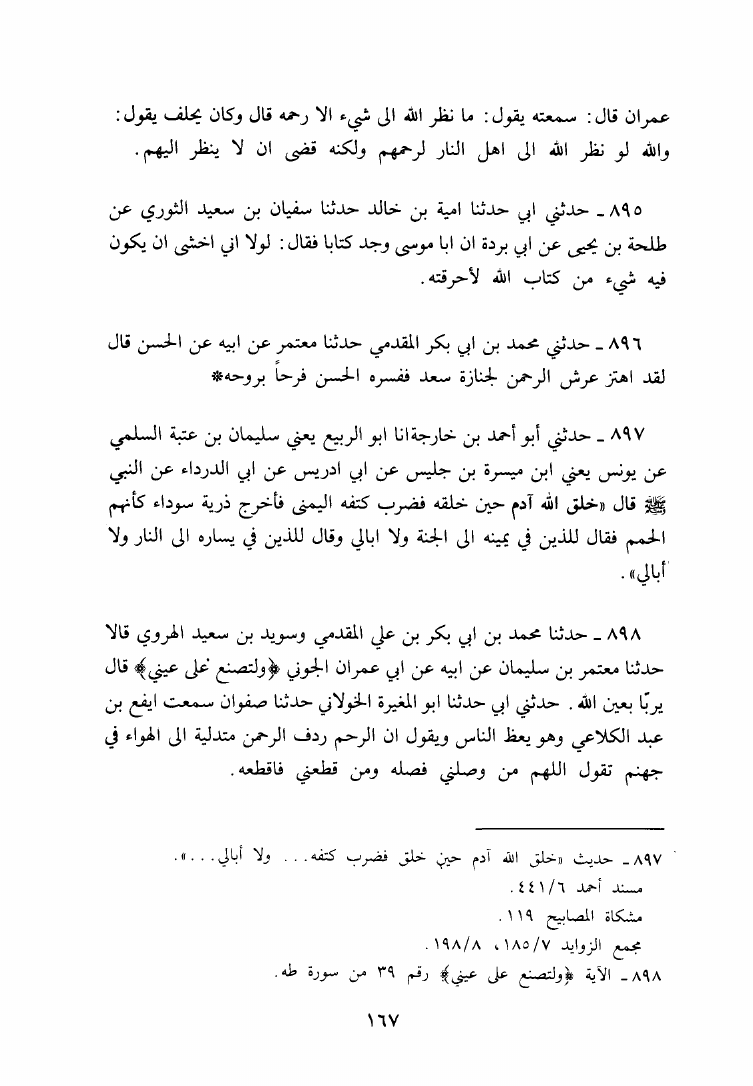 عمران قال: سمعته يقول: ما نظر الله الى شيء الا رحمه قال وكان يحلف يقول:
والله لو نظر الله الى اهل النار لرحمهم ولكنه قضى ان لا ينظر اليهم.
٨٩٥ ـ حدثني ابي حدثنا امية بن خالد حدثنا سفيان بن سعيد الثوري عن
طلحة بن يحيى عن ابي بردة ان ابا موسى وجد كتابا فقال: لولا اني اخشى ان يكون
فيه شيء من كتاب الله لأحرقته.
٨٩٦ ـ حدثني محمد بن ابي بكر المقدمي حدثنا معتمر عن ابيه عن الحسن قال
لقد اهتز عرش الرحمن لجنازة سعد ففسره الحسن فرحاً بروحه*
٨٩٧ ـ حدثني أبو أحمد بن خارجة انا ابو الربيع يعني سليمان بن عتبة السلمي
عن يونس يعني ابن ميسرة بن جليس عن ابي ادريس عن ابي الدرداء عن النبي
ﷺ قال «خلق الله آدم حين خلقه فضرب كتفه اليمنى فأخرج ذرية سوداء كأنهم
الحمم فقال للذين في يمينه الى الجنة ولا ابالي وقال للذين في يساره الى النار ولا
أبالي».
٨٩٨ ـ حدثنا محمد بن ابي بكر بن علي المقدمي وسويد بن سعيد الهروي قالا
حدثنا معتمر بن سليمان عن ابيه عن ابي عمران الجوني ﴿ولتصنع على عيني﴾ قال
يربّا بعين الله. حدثني ابي حدثنا ابو المغيرة الخولاني حدثنا صفوان سمعت ايفع بن
عبد الكلاعي وهو يعظ الناس ويقول ان الرحم ردف الرحمن متدلية الى الهواء في
جهنم تقول اللهم من وصلني فصله ومن قطعني فاقطعه.
٨٩٧ ـ حديث «خلق الله آدم حين خلق فضرب كتفه... ولا أبالي...».
مسند أحمد ٤٤١/٦.
مشكاة المصابيح ١١٩.
مجمع الزوايد ١٨٥/٧، ١٩٨/٨.
٨٩٨ ـ الآية ﴿ولتصنع على عيني﴾ رقم ٣٩ من سورة طه.
١٦٧